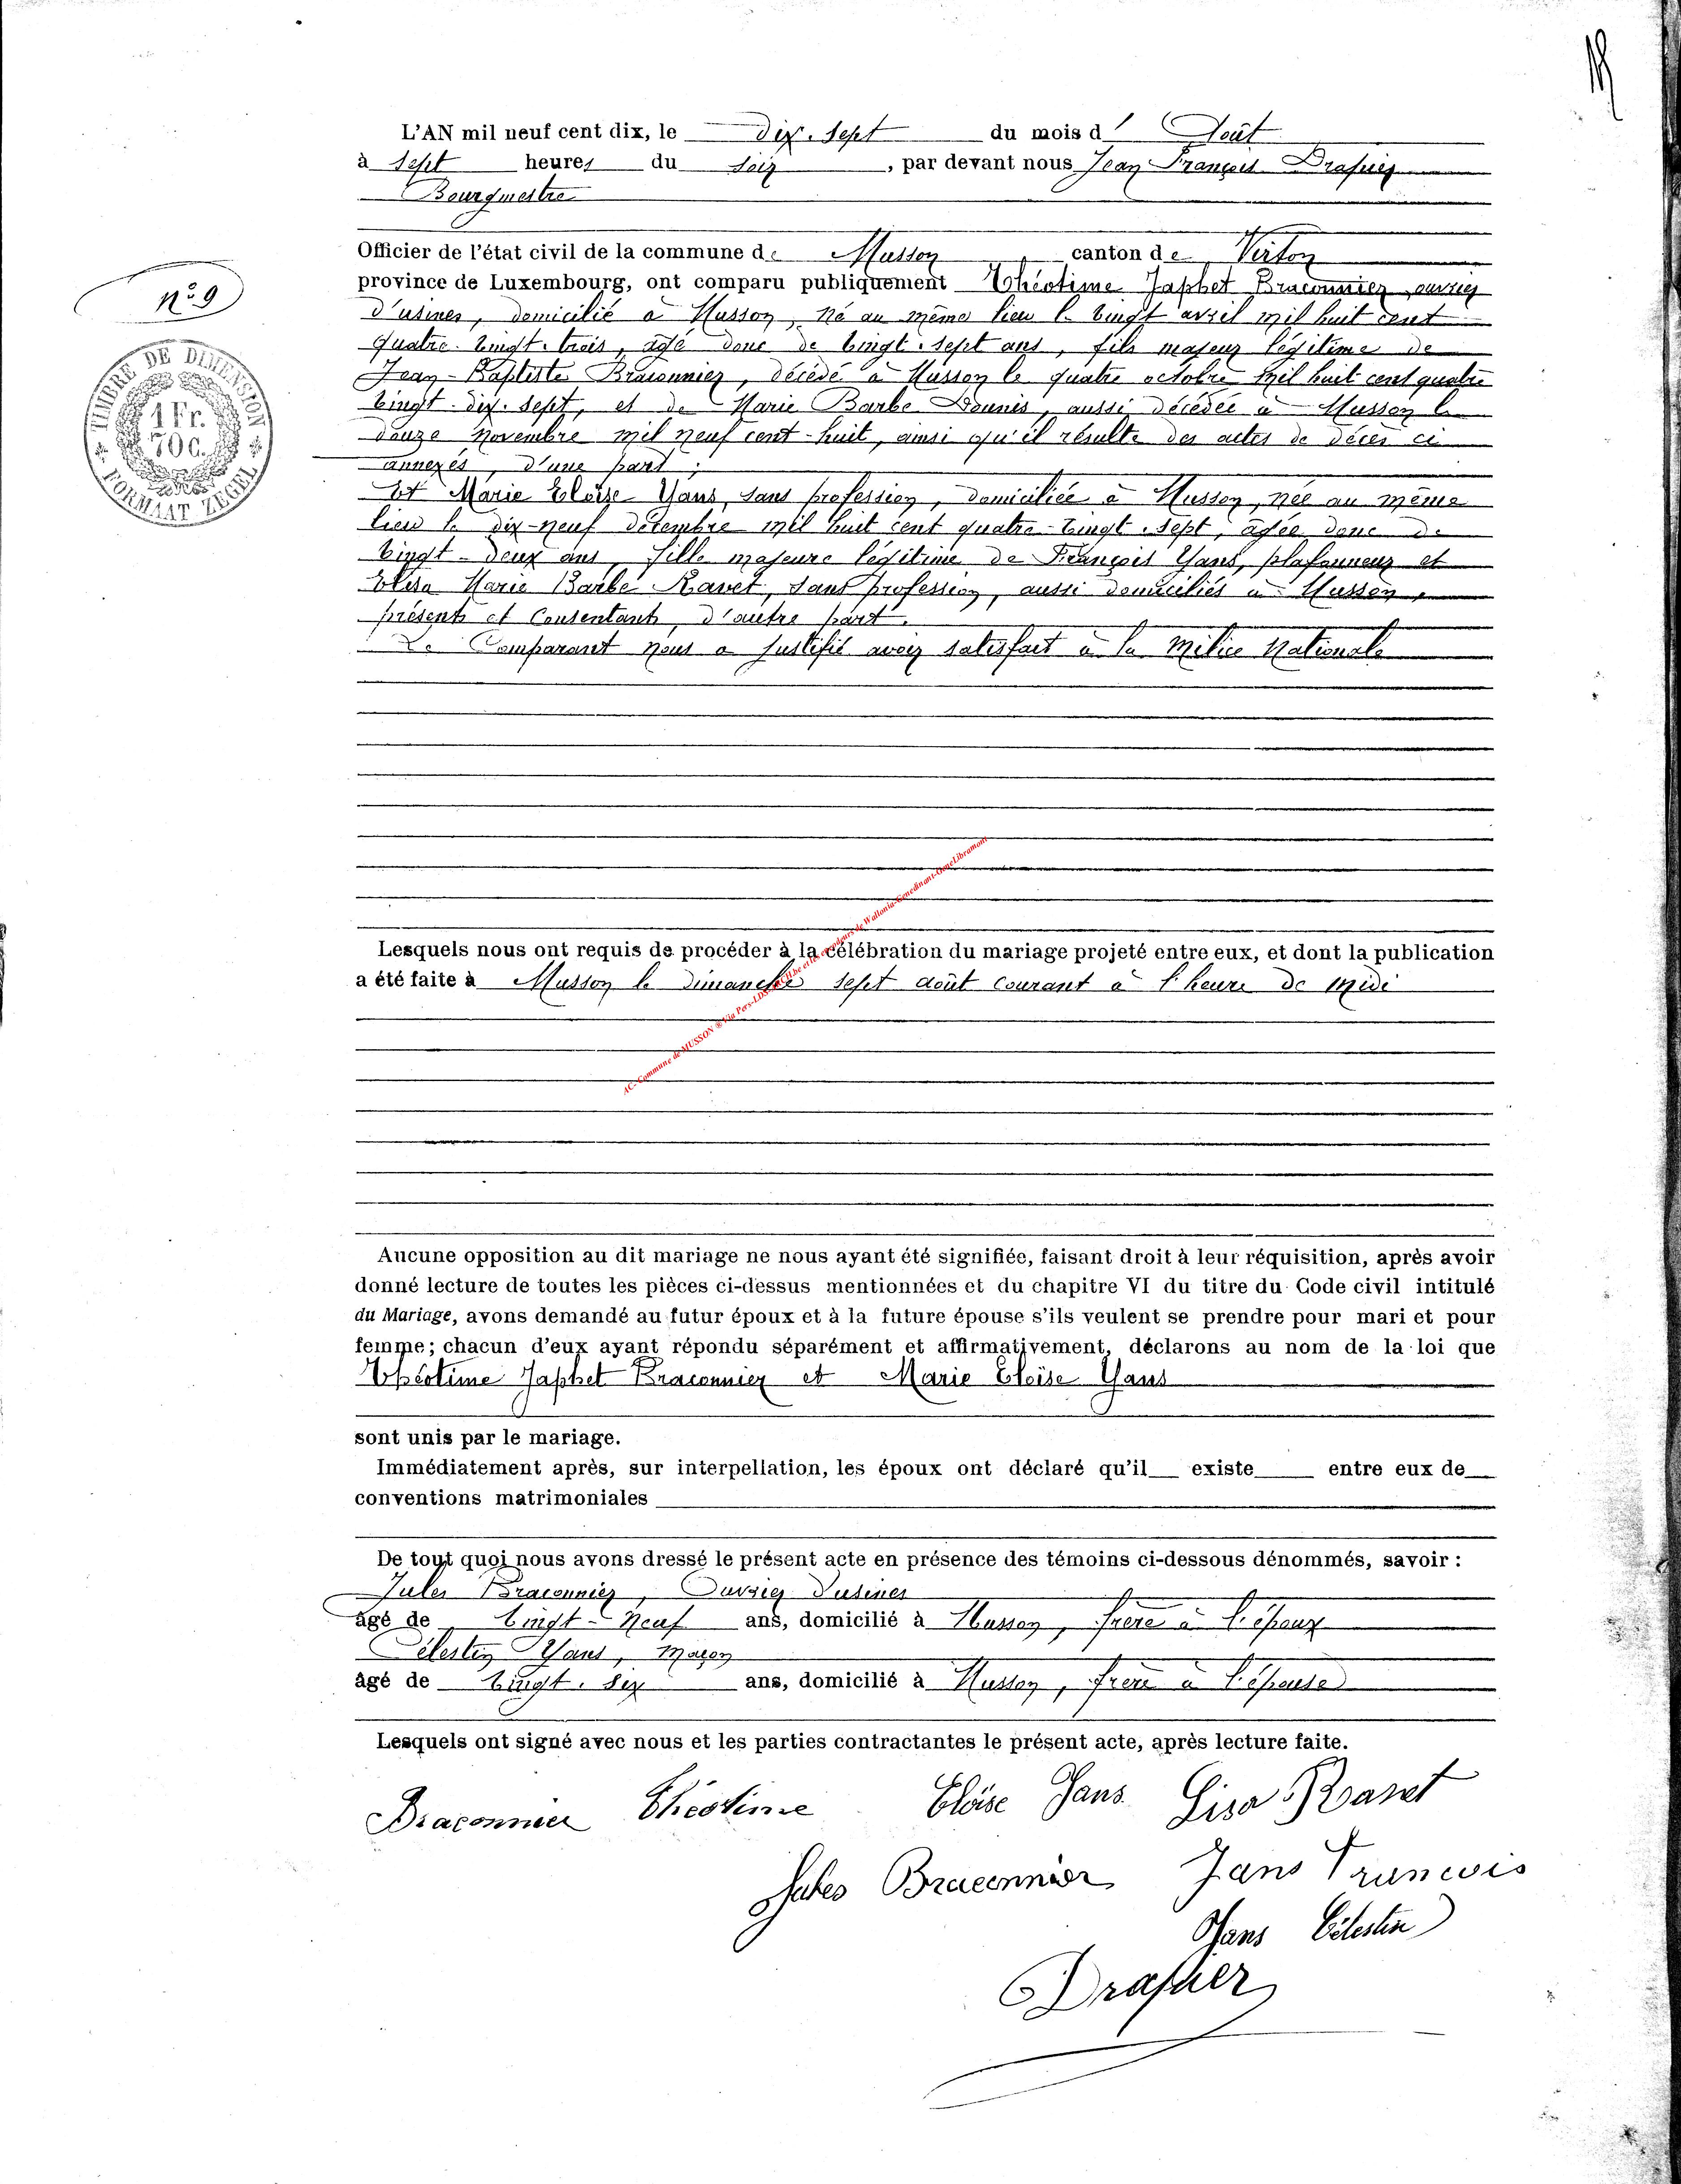 L'AN mil neuf cent dix, le dix-sept du mois d' Août
à sept heures du soir, par devant nous Jean François Drapier
Bourgmestre
Officier de l'état civil de la commune de Musson canton de Virton
province de Luxembourg, ont comparu publiquement Théotime Japhet Braconnier, ouvrier
d'usines, domicilié à Musson, né au même lieu le vingt avril mil huit cent
quatre-vingt-trois, âgé donc de vingt-sept ans, fils majeur légitime de
Jean-Baptiste Braconnier, décédé à Musson le quatre octobre mil huit cent quatre
vingt-dix-sept, et de Marie Barbe, aussi décédée à Musson le
douze novembre mil neuf cent-huit, ainsi qu'il résulte des actes de décès ci
annexés, d'une part;
Et Marie Eloïse Yans, sans profession, domiciliée à Musson, née au même
lieu le dix-neuf décembre mil huit cent quatre-vingt-sept, âgée donc de
vingt-deux ans, fille majeure légitime de François Yans, plafonneur et
Elisa Marie Barbe Ravet, sans profession, aussi domiciliés à Musson,
présents et consentants, d'autre part.
Le Comparant nous a justifié avoir satisfait à la milice Nationale
Lesquels nous ont requis de procéder à la célébration du mariage projeté entre eux, et dont la publication
a été faite à Musson le dimanche sept août courant à l'heure de midi
Aucune opposition au dit mariage ne nous ayant été signifiée, faisant droit à leur réquisition, après avoir
donné lecture de toutes les pièces ci-dessus mentionnées et du chapitre VI du titre du Code civil intitulé
du Mariage, avons demandé au futur époux et à la future épouse s'ils veulent se prendre pour mari et pour
femme; chacun d'eux ayant répondu séparément et affirmativement, déclarons au nom de la loi que
Théotime Japhet Braconnier et Marie Eloïse Yans
sont unis par le mariage.
Immédiatement après, sur interpellation, les époux ont déclaré qu'il existe entre eux de
conventions matrimoniales
De tout quoi nous avons dressé le présent acte en présence des témoins ci-dessous dénommés, savoir :
Jules Braconnier, Ouvrier d'usines
âgé de vingt-neuf ans, domicilié à Musson, frère à l'époux
Célestin Yans, maçon
âgé de vingt-six ans, domicilié à Musson, frère à l'épouse
Lesquels ont signé avec nous et les parties contractantes le présent acte, après lecture faite.
Braconnier Théotime Eloïse Yans Lisa Ravet
Jules Braconnier Jans Francois
Yans Célestin
Drapier
N° 9
TIMBRE DE DIMENSION
1 Fr.
70 C.
FORMAAT ZEGEL